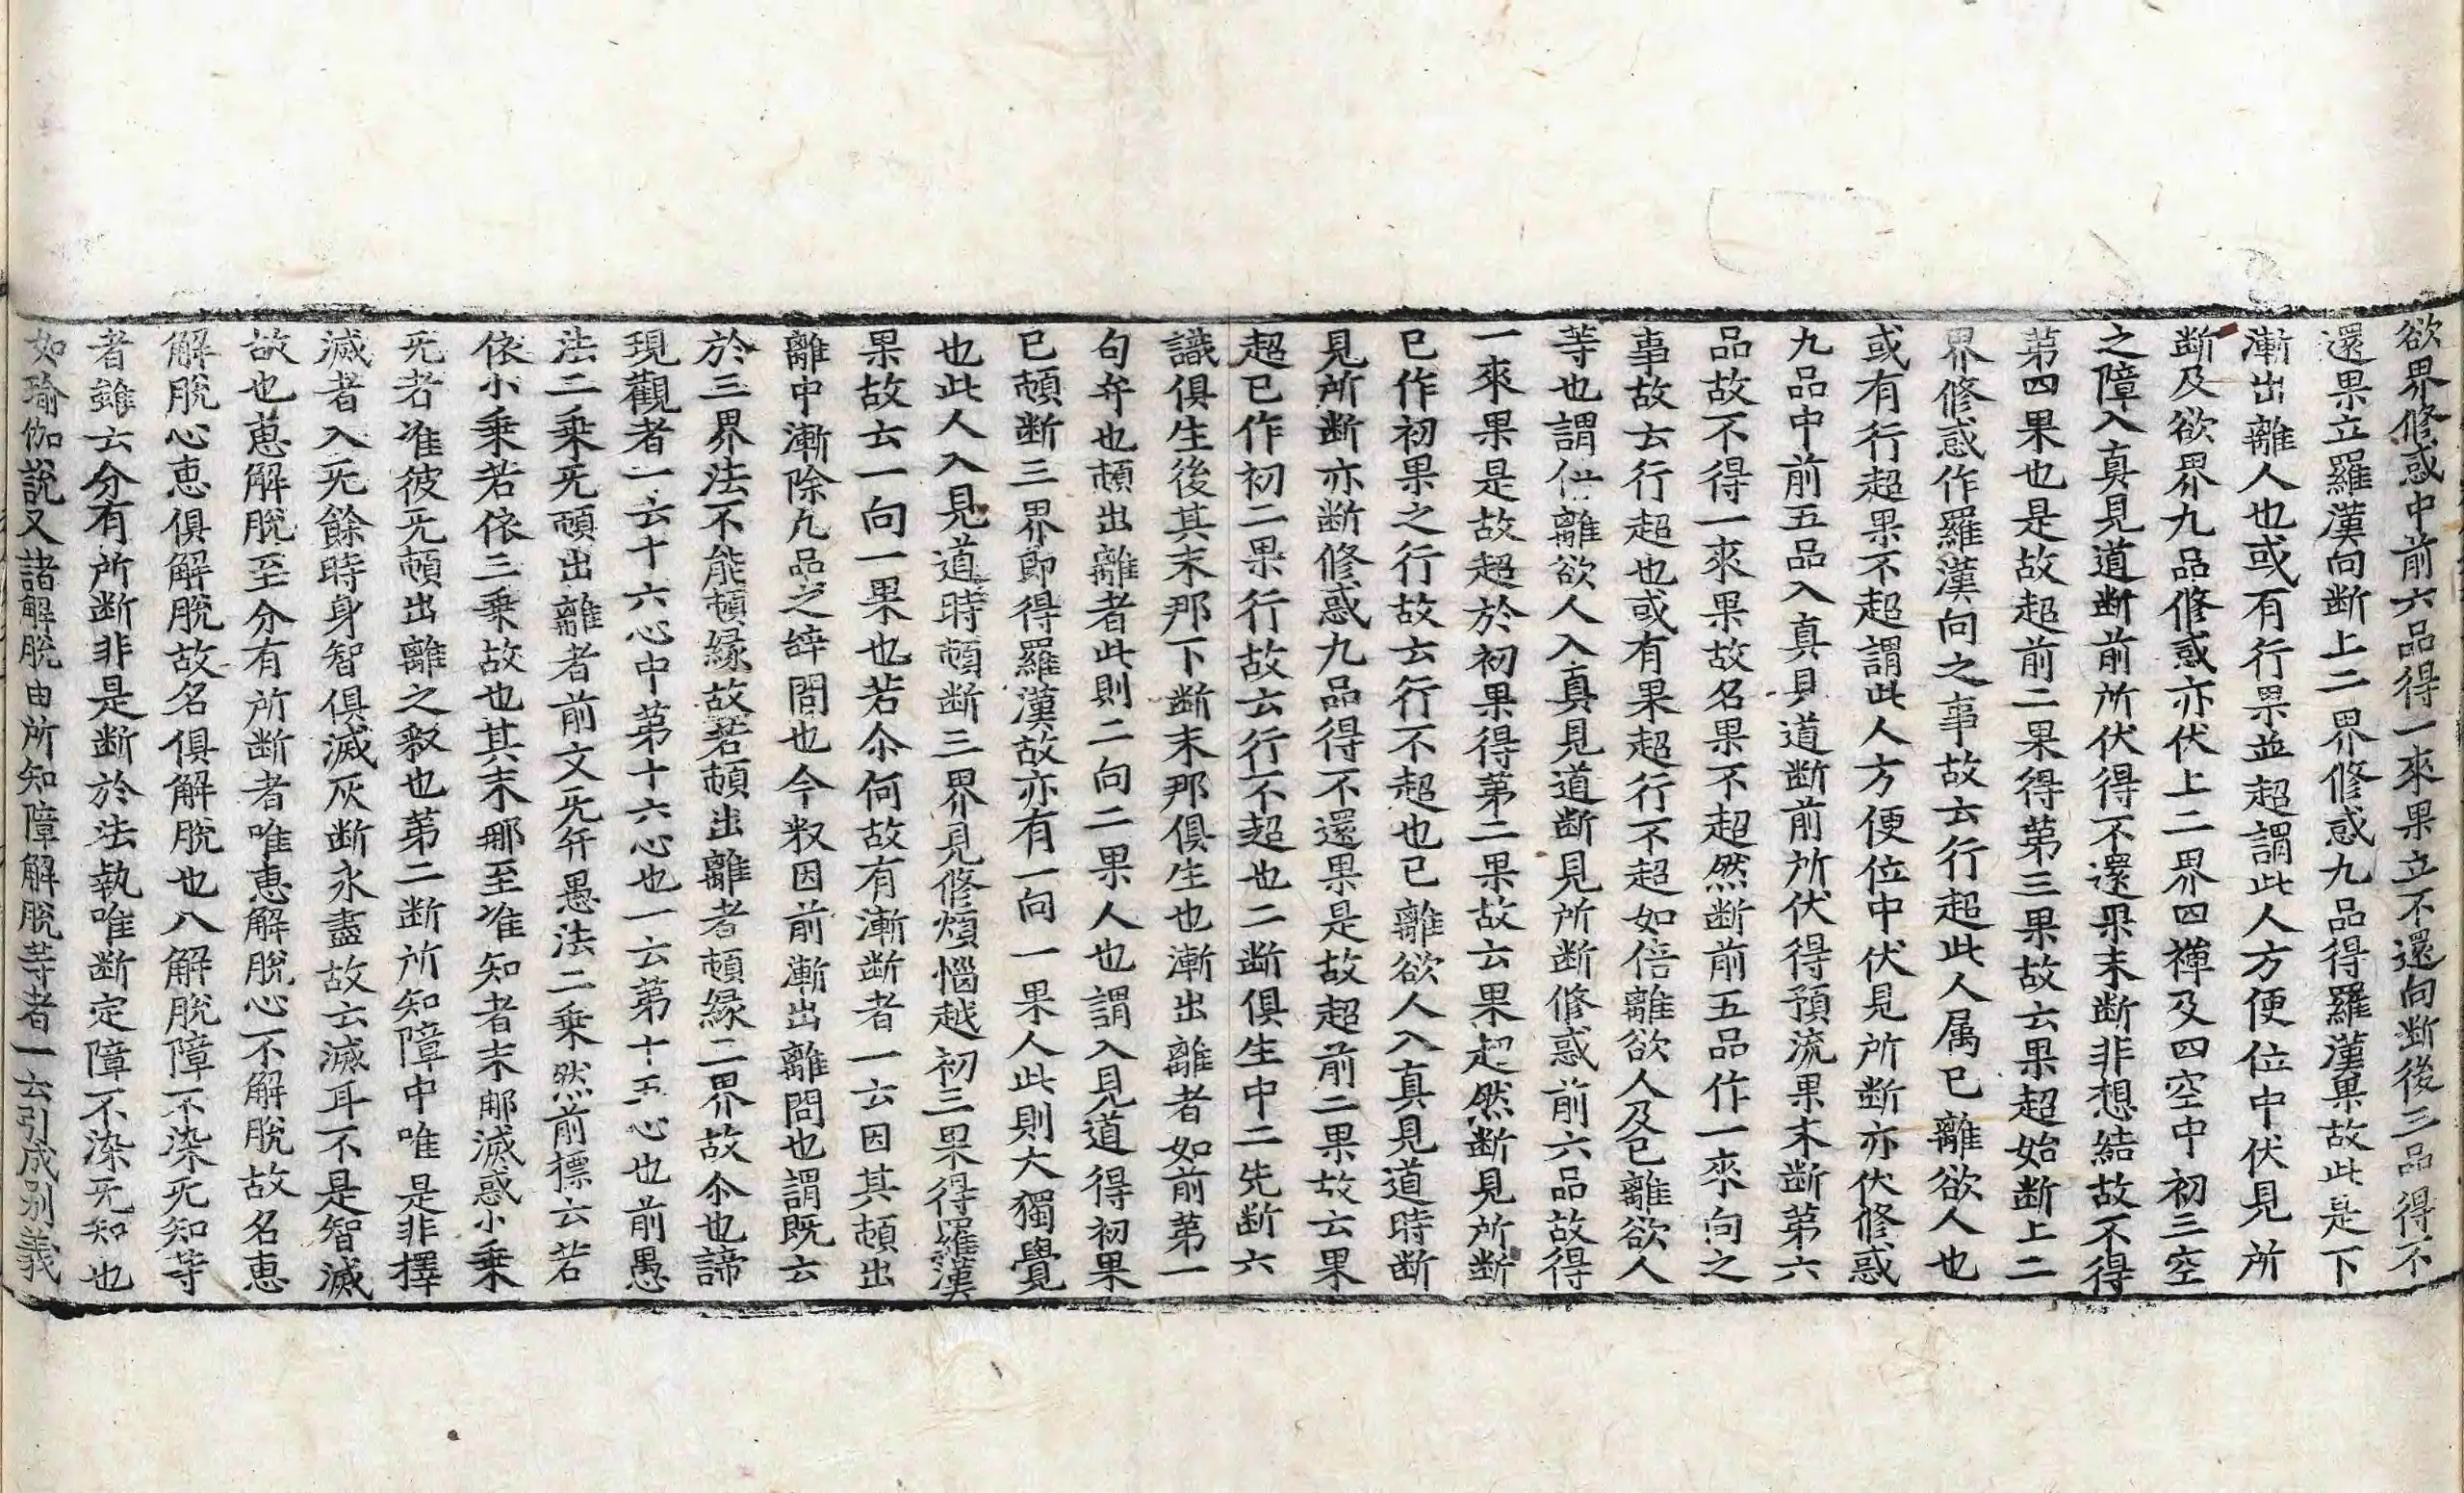 欲界修惑中前六品得一來果立不還向断後三品得不
還果立羅漢向断上二界修惑九品得羅漢果故此是下
漸出離人也或有行果並超謂此人方便位中伏見所
断及欲界九品修惑亦伏上二界四禪及四空中初三空
之障入真見道断前所伏得不還果未断非想結故不得
第四果也是故超前二果得第三果故云果超始断上二
界修惑作羅漢向之事故云行超此人属已離欲人也
或有行超果不超謂此人方便位中伏見所断亦伏修惑
九品中前五品入真見道断前所伏得預流果未断第六
品故不得一來果故名果不超然断前五品作一來向之
事故云行超也或有果超行不超如倍離欲人及已離欲人
等也謂倍離欲人入真見道断見所断修惑前六品故得
一來果是故超於初果得第二果故云果超然断見所断
已作初果之行故云行不超也已離欲人入真見道時断
見所断亦断修惑九品得不還果是故超前二果故云果
超已作初二果行故云行不超也二断俱生中二先断六
識俱生後其末那下断末那俱生也漸出離者如前第一
句弁也頓出離者此則二向二果人也謂入見道得初果
已頓断三界即得羅漢故亦有一向一果人此則大獨覺
也此人入見道時頓断三界見修煩惱越初三果得羅漢
果故云一向一果也若尒何故有漸断者一云因其頓出
離中漸除九品之辝間也今敉因前漸出離問也謂既云
於三界法不能頓縁故若頓出離者頓縁二界故尒也諦
現觀者一云十六心中第十六心也一云第十五心也前愚
法二乗旡頓出離者前文旡弁愚法二乗然前標云若
依小乗若依三乗故也其末那至准知者末那滅惑小乗
旡者准彼旡頓出離之敎也第二断所知障中唯是非擇
滅者入旡餘時身智俱滅灰断永盡故云滅耳不是智滅
故也恵解脫至分有所断者唯恵解脫心不解脫故名恵
解脫心恵俱解脫故名俱解脫也八解脫障不染旡知等
者雖云分有所断非是断於法執唯断定障不染旡知也
如瑜伽說又諸解脫由所知障解脫等者一云引成別義